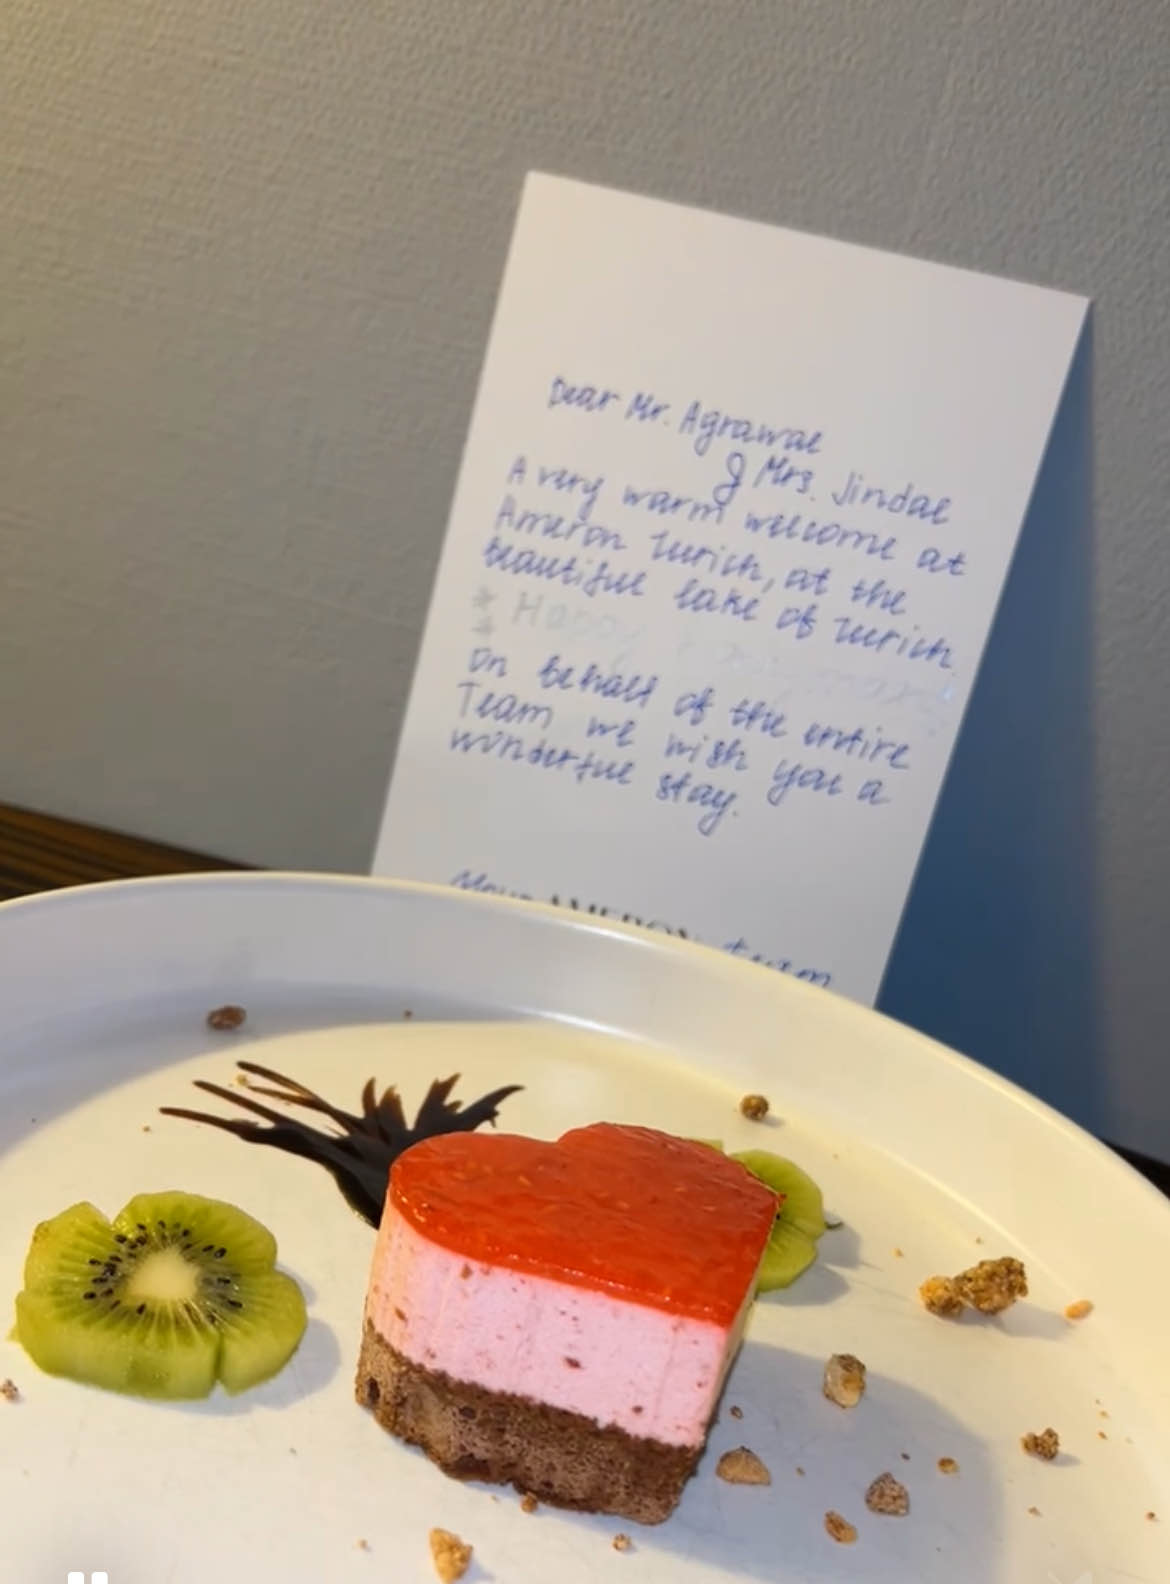 Dear Mr. Agrawal
& Mrs. Jindal
A very warm welcome at
Ameron Zurich, at the
beautiful lake of Zurich
* Happy
On behalf of the entire
Team we wish you a
wonderful stay.
Your AMERON team